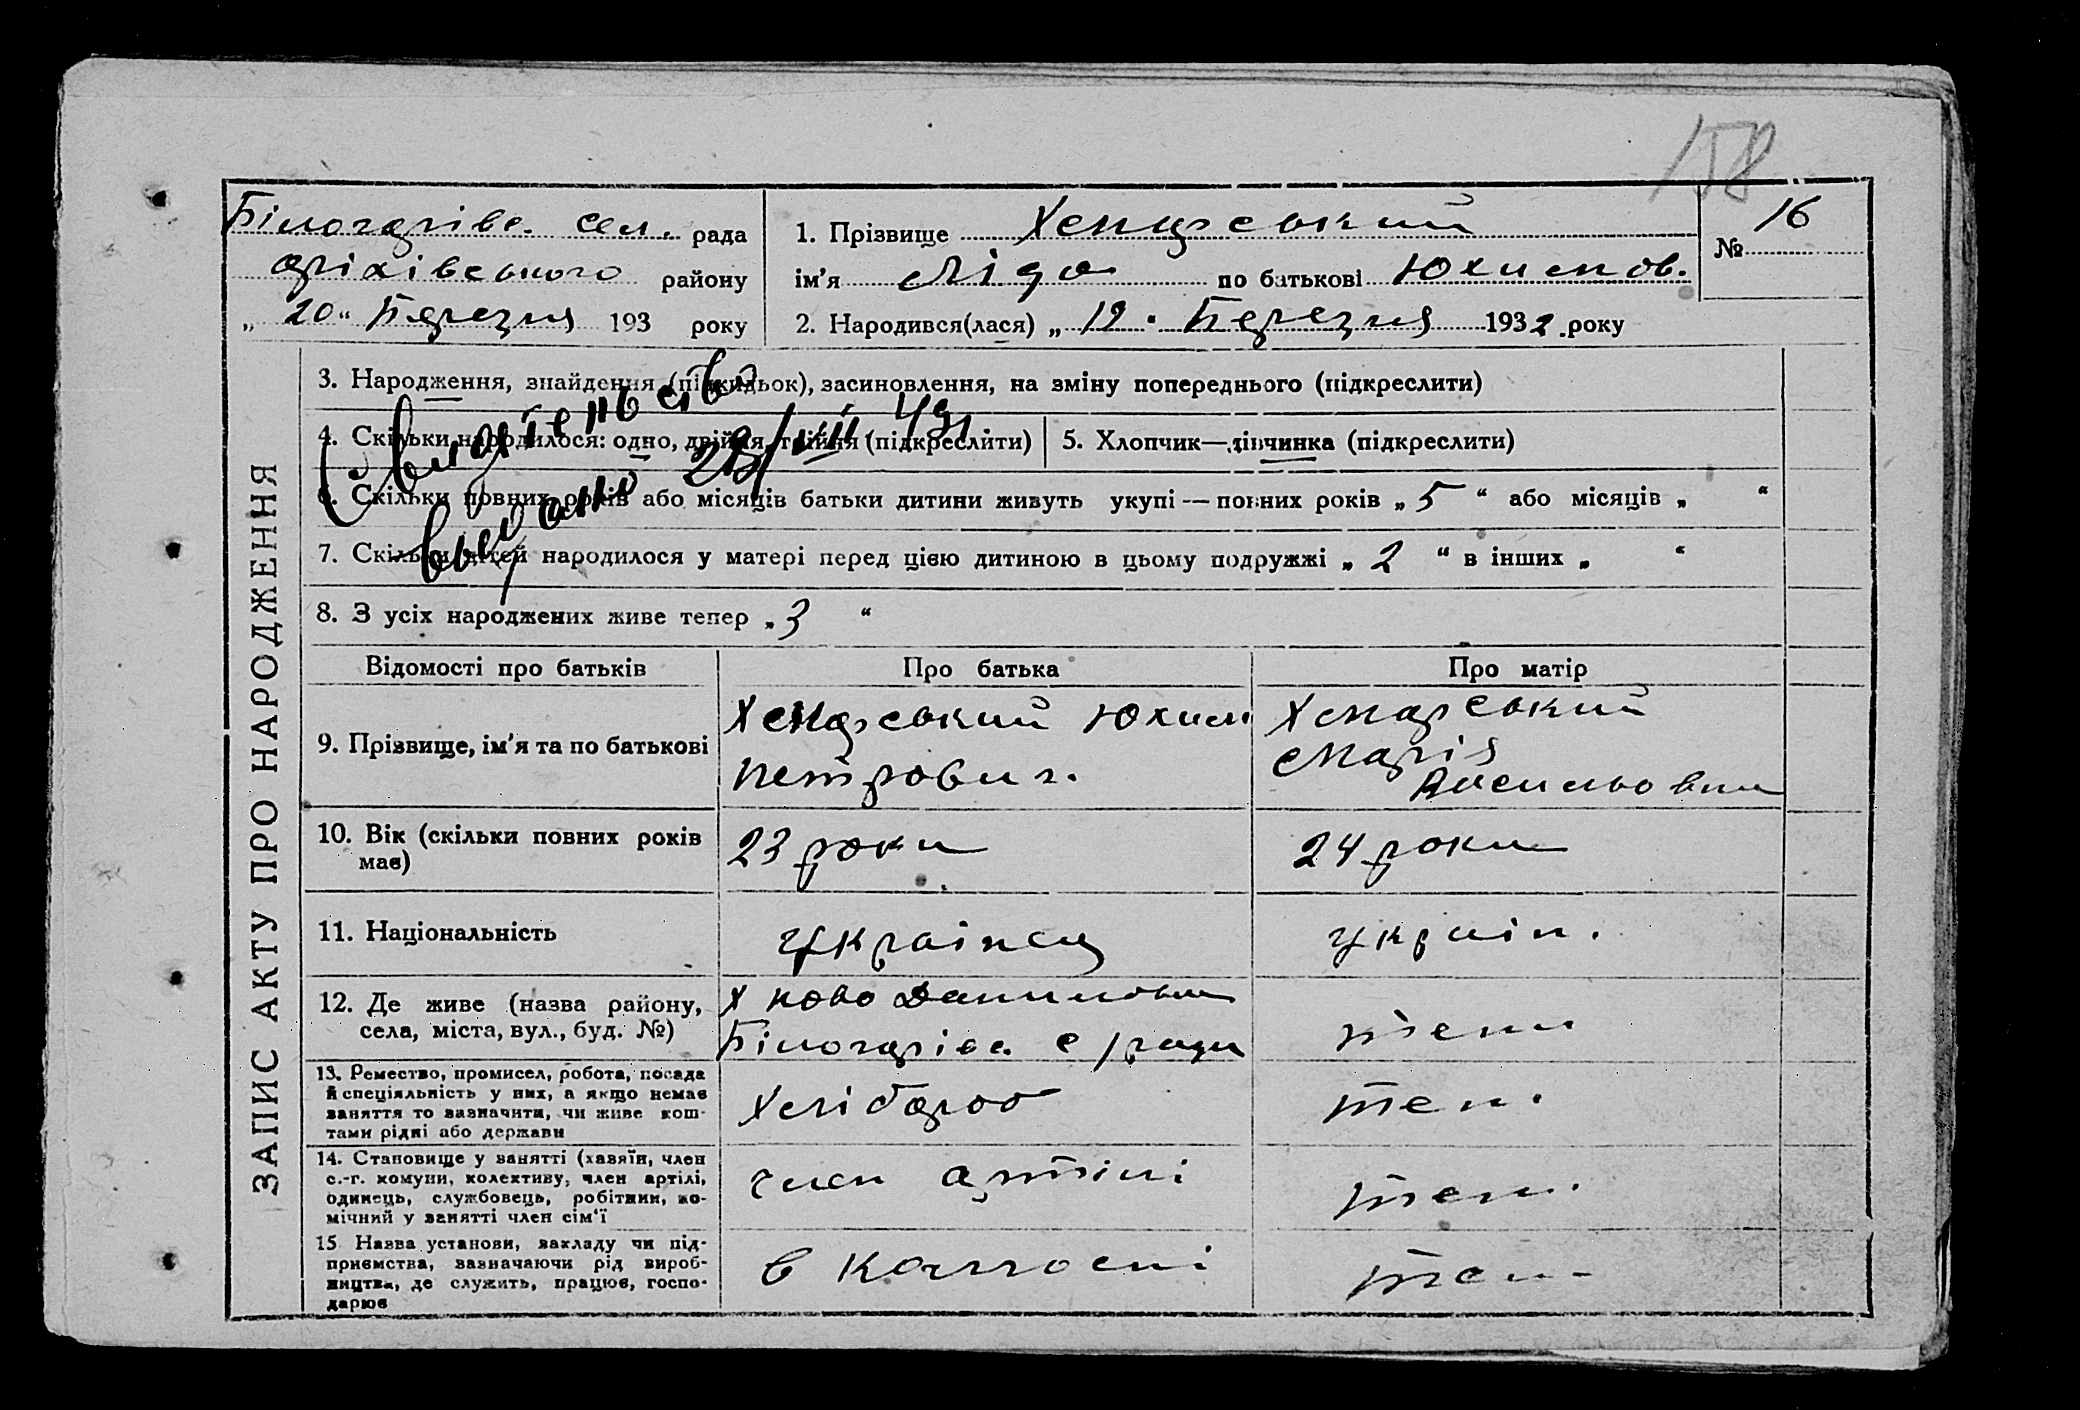 158
Білогарівс. сел. рада
оріхівського району
„ 20 “ Березня 193 року
1. Прізвище Хемарський
ім’я Ліда по батькові Юхимов.
2. Народився(лася) „ 19 . Березня 1932 .року
№ 16
ЗАПИС АКТУ ПРО НАРОДЖЕННЯ
3. Народження, знайдення (підкидьок), засиновлення, на зміну попереднього (підкреслити)
4. Скільки народилося: одно, двійня, трійня (підкреслити)
5. Хлопчик—дівчинка (підкреслити)
6. Скільки повних років або місяців батьки дитини живуть укупі — повних років „ 5 “ або місяців „ “
7. Скільки дітей народилося у матері перед цією дитиною в цьому подружжі „ 2 “ в інших „ “
8. З усіх народжених живе тепер „ 3 “
Відомості про батьків
Про батька
Про матір
9. Прізвище, ім’я та по батькові
Хемарський Юхим
Петрович.
Хемарський
Марія
10. Вік (скільки повних років
має)
23 роки
24 роки
11. Національність
Українец
україн.
12. Де живе (назва району,
села, міста, вул., буд. №)
Х Ново Даниловка
Білогарівс. с/ради
теж
13. Ремество, промисел, робота, посада
й спеціяльність у них, а якщо немає
заняття то зазначити, чи живе кош-
тами рідні або держави
Хлібороб
теж.
14. Становище у занятті (хазяїн, член
с.-г. комуни, колективу, член артілі,
одинець, службовець, робітник, по-
мічний у занятті член сім’ї
член артілі
теж.
15 Назва установи, закладу чи під-
приємства, зазначаючи рід вироб-
ництва, де служить, працює, госпо-
дарює
в колгоспі
теж